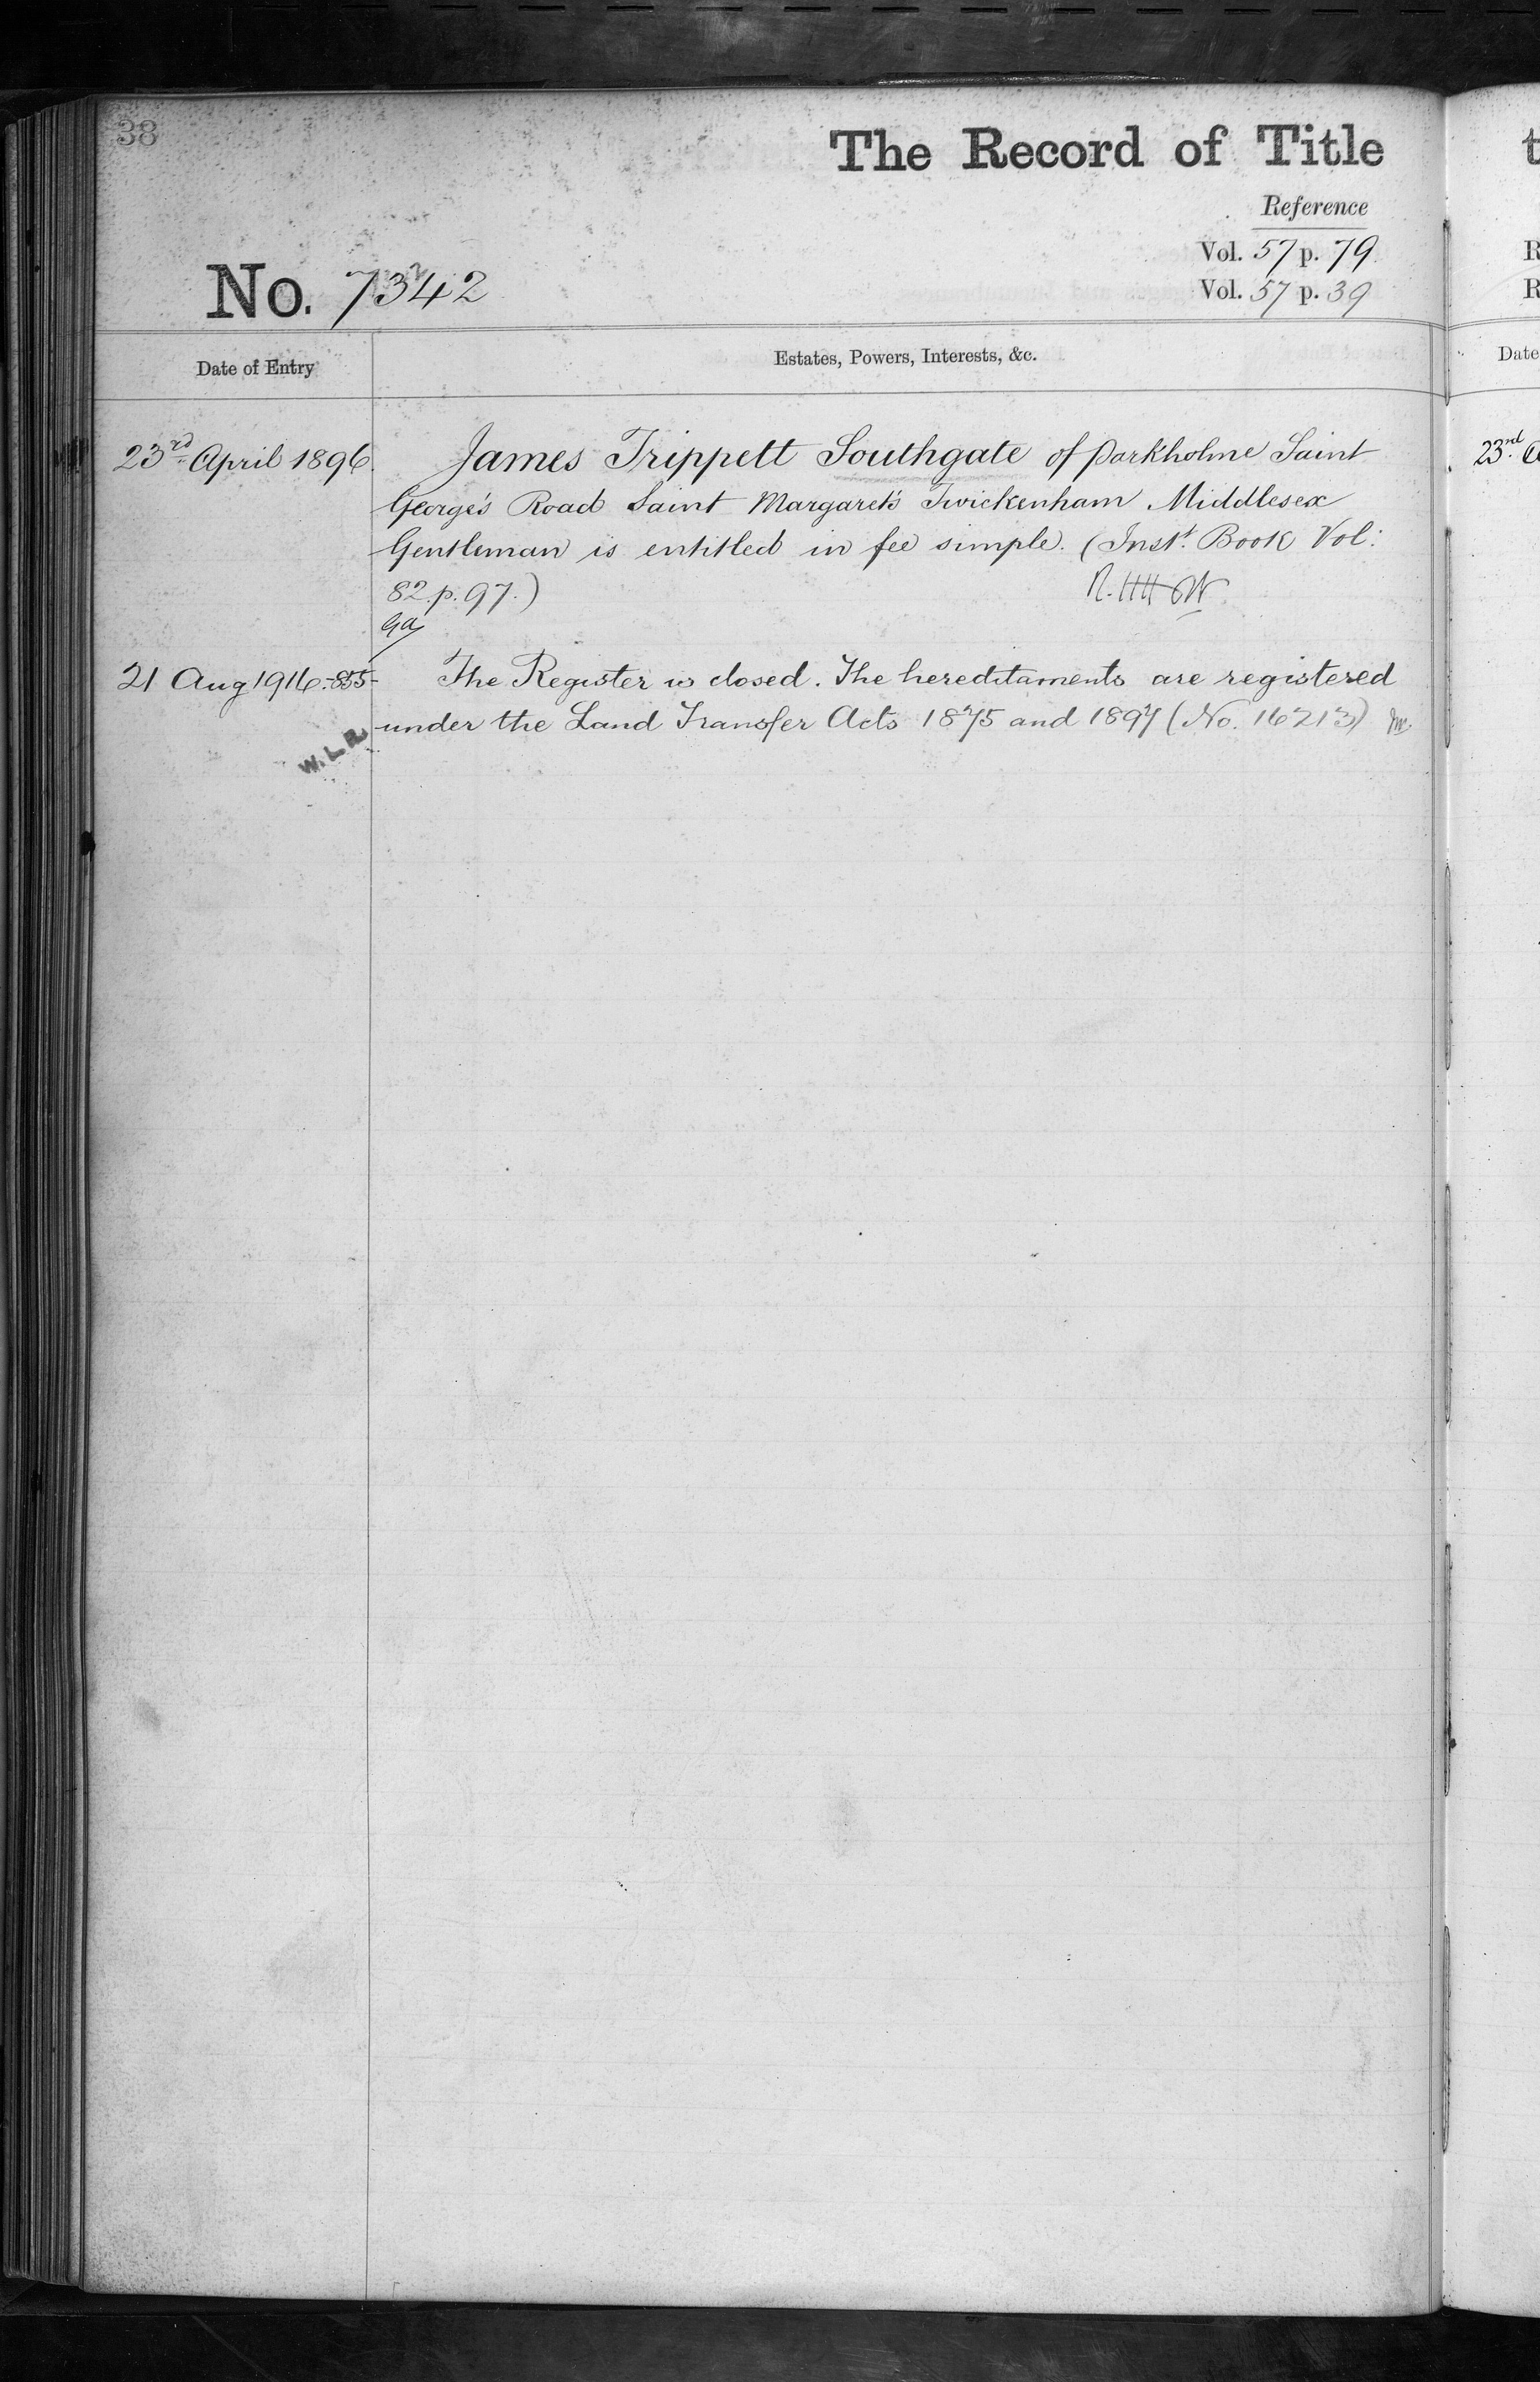 38
The Record of Title
Reference
Vol. 57 p. 79
No. 7342
Vol. 57 p. 39
Date of Entry
Estates, Powers, Interests, &c.
23rd April 1896.
James Trippett Southgate of Parkholme Saint
George's Road Saint Margaret's Twickenham Middlesex
Gentleman is entitled in fee simple. (Inst. Book Vol:
82. p. 97.)
21 Aug 1916.-855-
The Register is closed. The hereditaments are registered
under the Land Transfer Acts 1875 and 1897 (No. 16213)
W.L.R.
Date
23rd